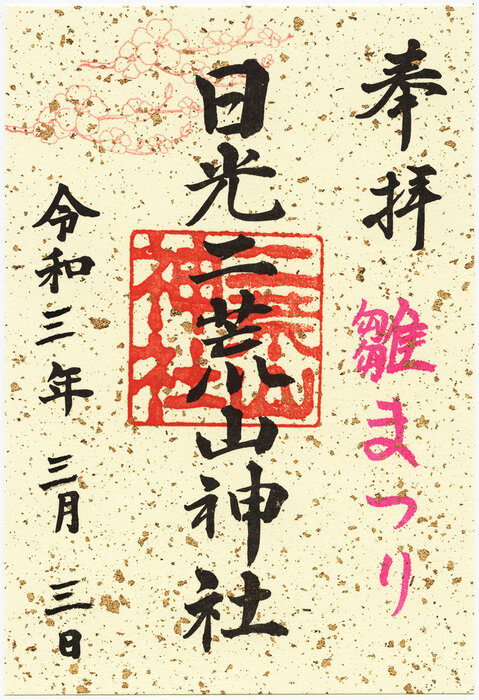 奉拝
雛まつり
日光二荒山神社
二荒山神社
令和三年 三月 三日